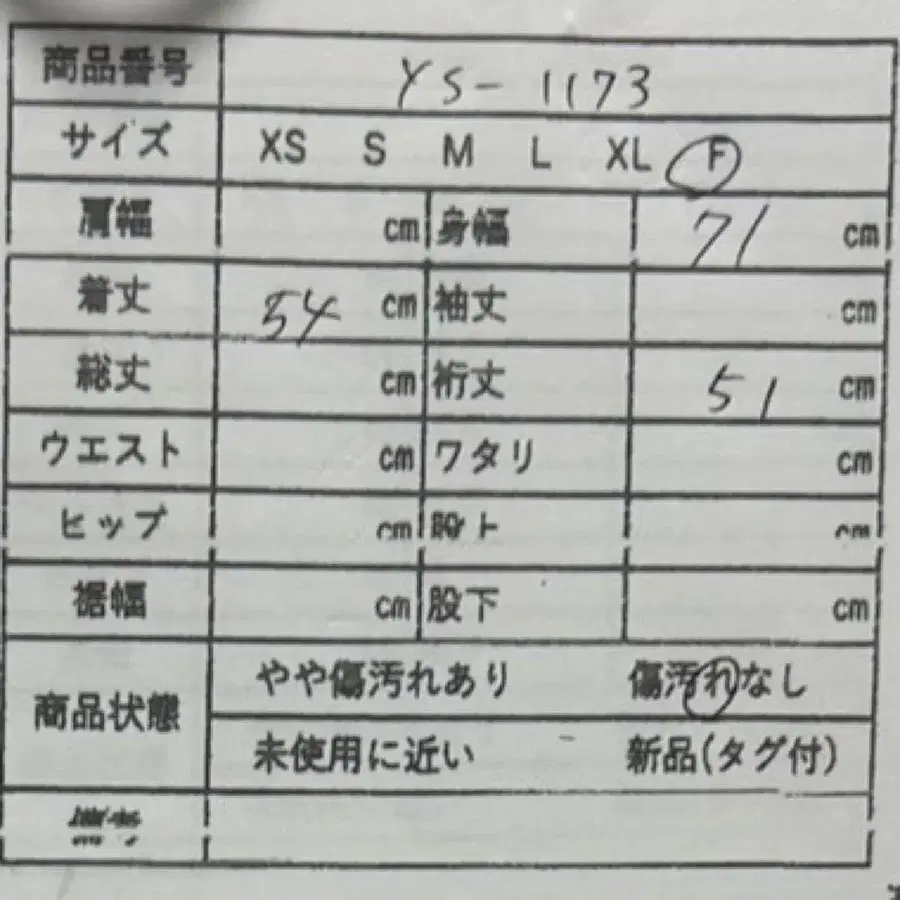 商品番号 YS-1173
サイズ XS S M L XL F
肩幅 cm 身幅 71 cm
着丈 54 cm 袖丈 cm
総丈 cm 裄丈 51 cm
ウエスト cm ワタリ cm
ヒップ cm 股上 cm
裾幅 cm 股下 cm
商品状態 やや傷汚れあり 傷汚れなし
未使用に近い 新品(タグ付)